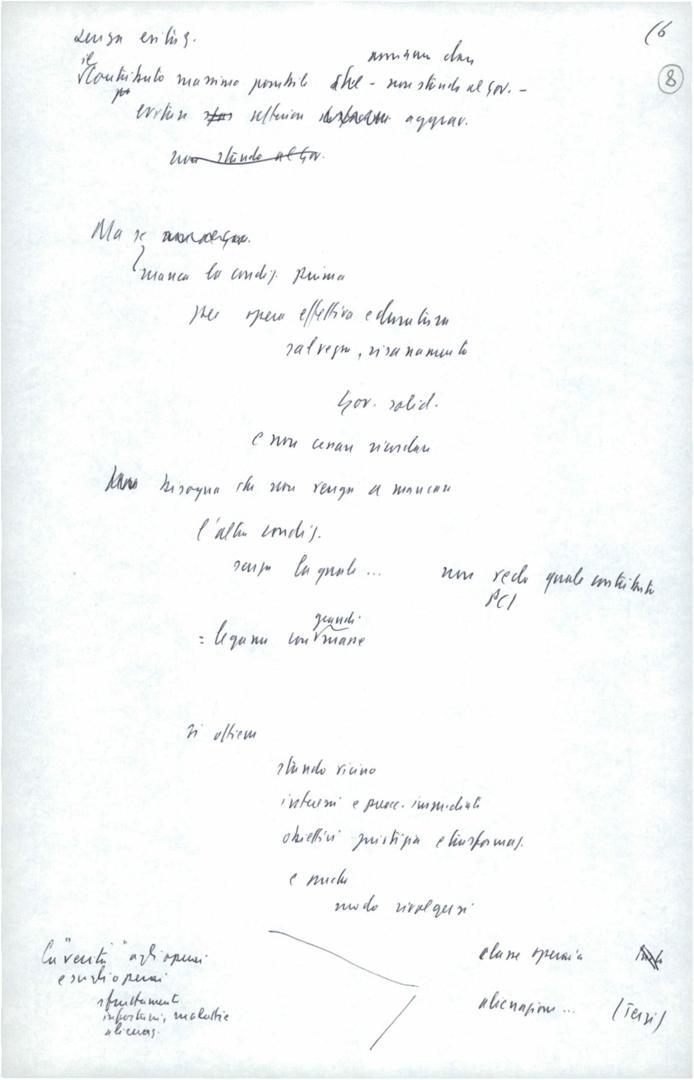 (6
8
senza esitaz.
il
Contributo massimo possibile che - non stando al gov. -
per
evitare ulteriori aggrav.
non stando al gov.
Ma se
manca la condiz. prima
per opera effettiva e duratura
salvezza, risanamento
Gov. solid.
e non cessare ricordare
bisogna che non venga a mancare
l'altra condiz.
senza la quale ... non vedo quale contributo
PCI
grandi
= legame con masse
si ottiene
stando vicino
interessi e preocc. immediate
obiettivi giustizia e trasformaz.
e anche
modo rivolgersi
La "verità" agli operai
e sugli operai
sfruttamento
infortuni, malattie
alienaz.
classe operaia
alienazione ... (Terzi)